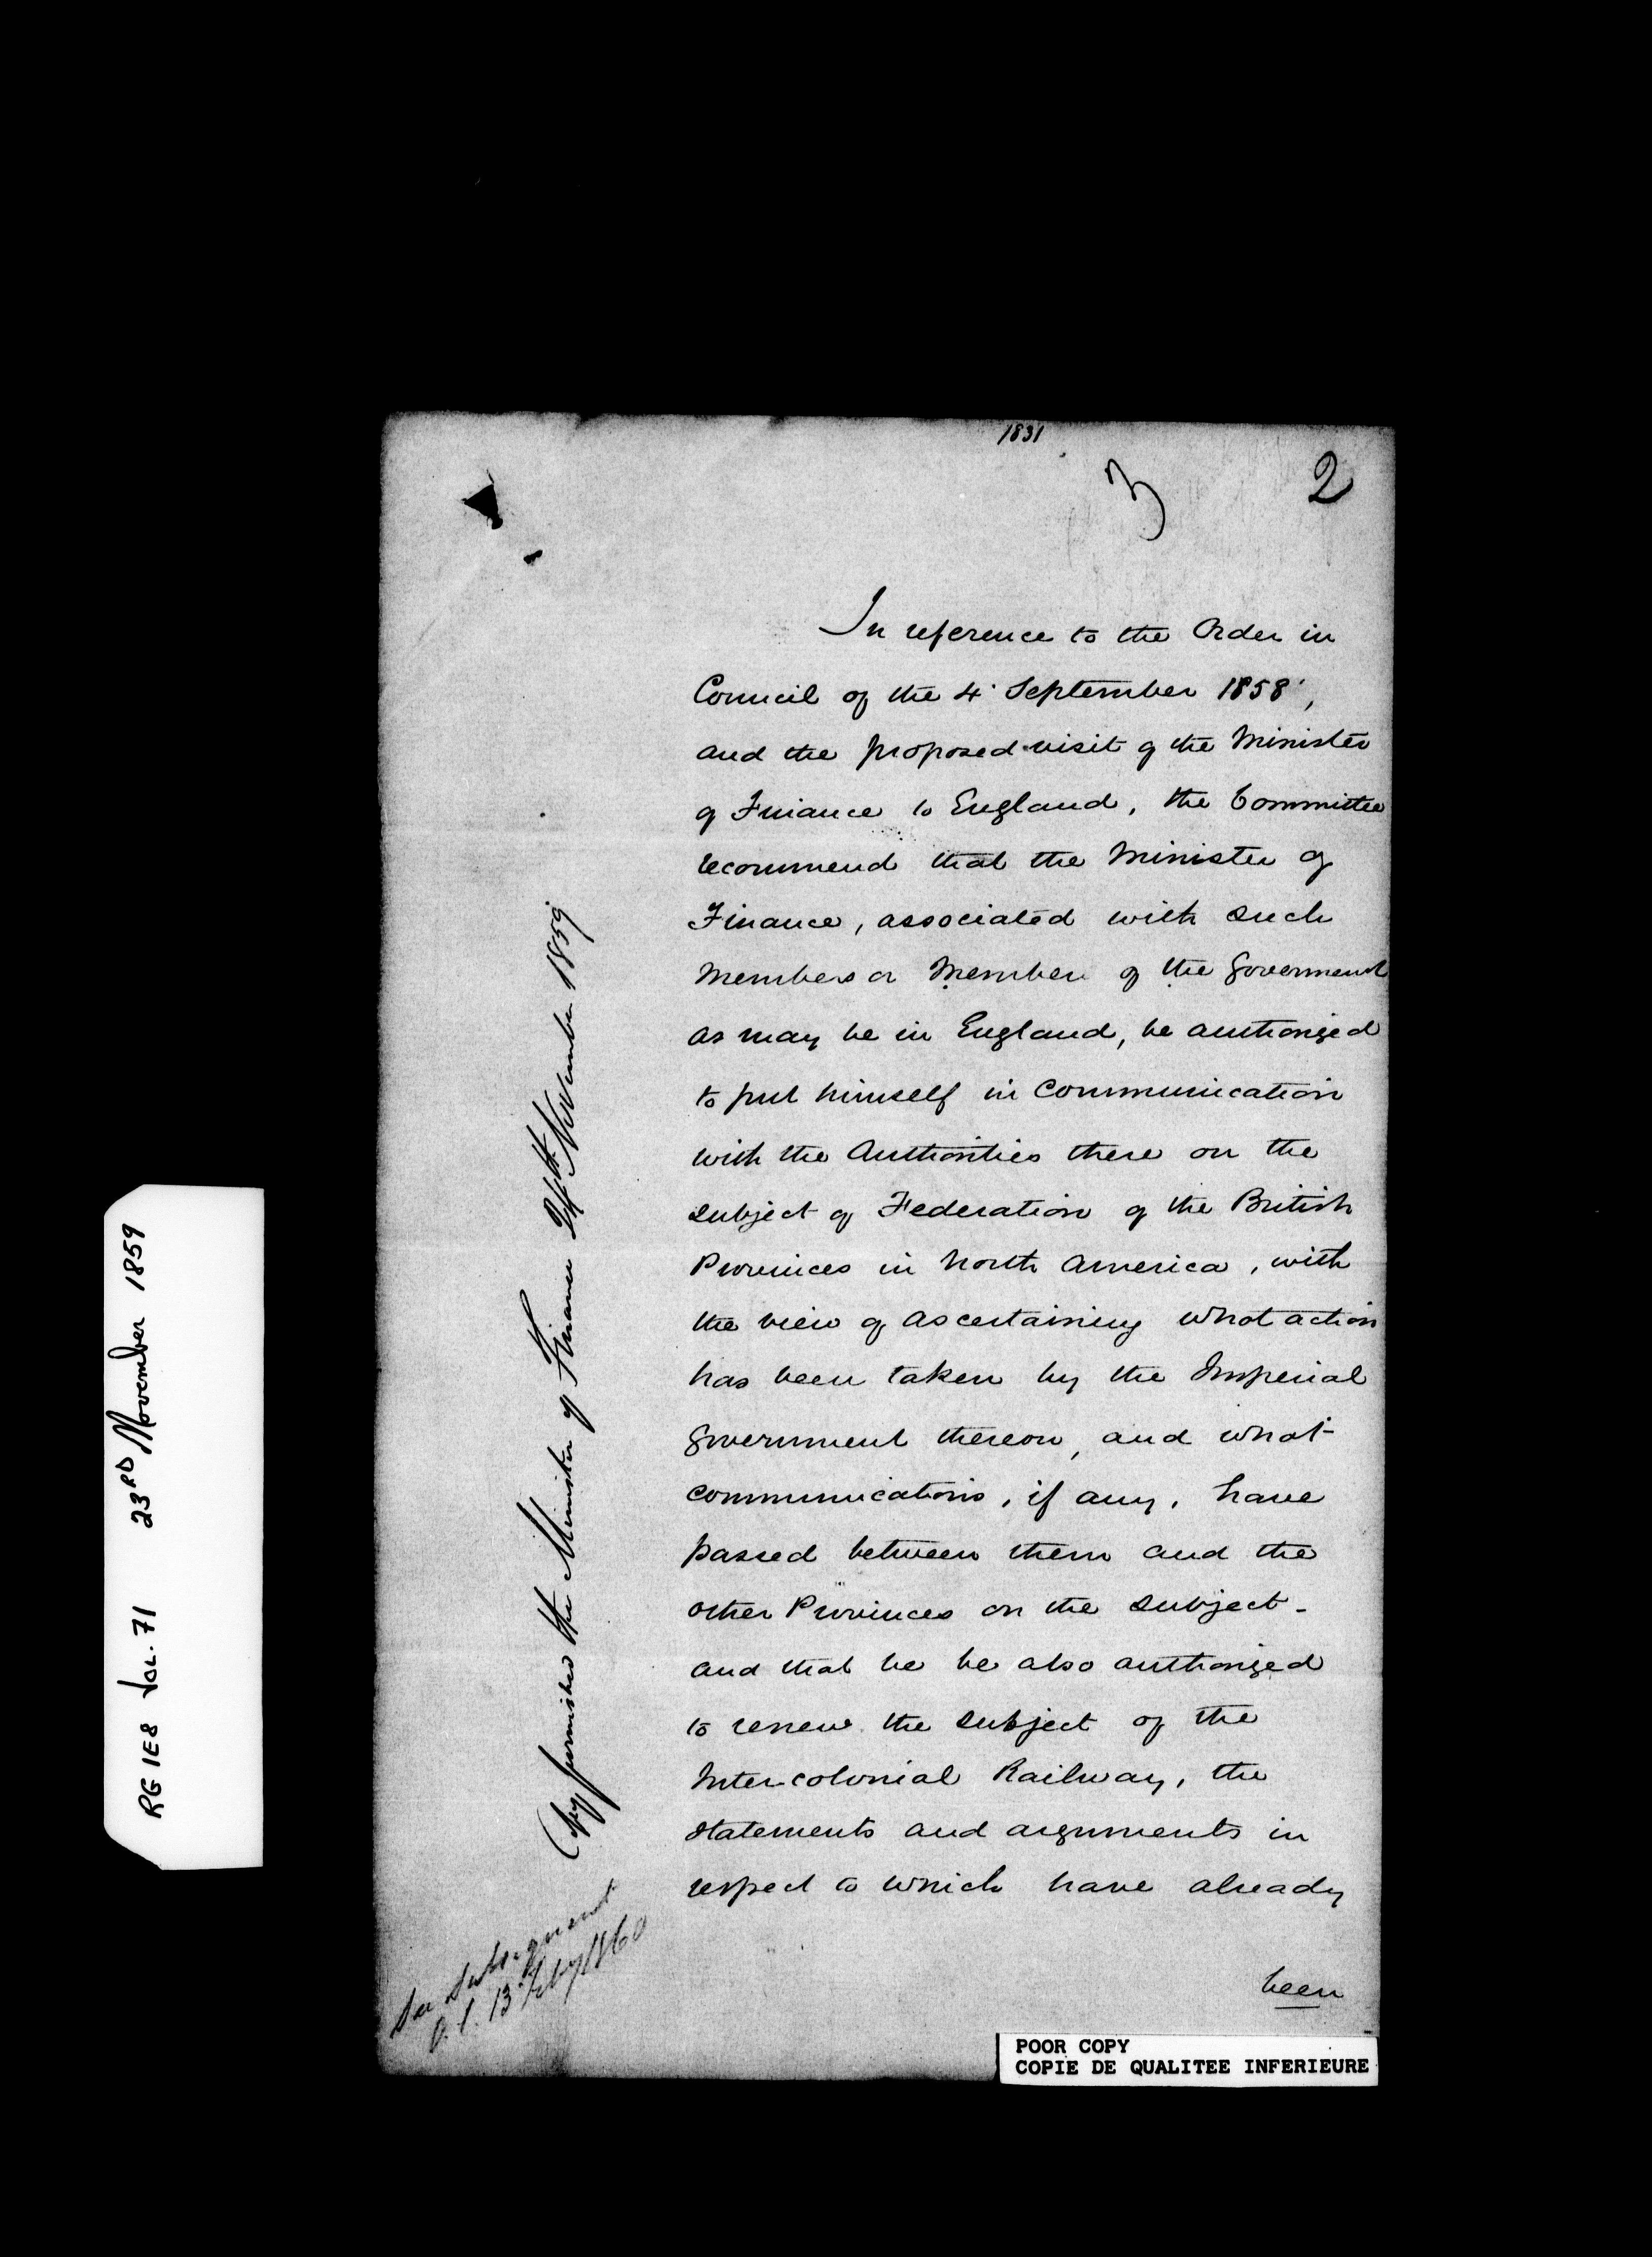 1831
3 2
In reference to the Order in
Council of the 4 September 1858,
and the proposed visit of the Minister
of Finance to England, the Committee
recommend that the Minister of
Finance, associated with such
Members or Member of the Government
as may be in England, be authorized
to put himself in Communication
with the Authorities there on the
subject of Federation of the British
Provinces in North America, with
the view of ascertaining what action
has been taken by the Imperial
Government thereon, and what
communications, if any, have
passed between them and the
other Provinces on the subject -
and that he be also authorized
to renew the subject of the
Inter-colonial Railway, the
statements and arguments in
respect to which have already
been
Copy furnished the Minister of Finance 24th November 1859
See Subsequent
O.C. 13 Feby 1860
RG 1E8 Vol. 71 23RD November 1859
POOR COPY
COPIE DE QUALITEE INFERIEURE